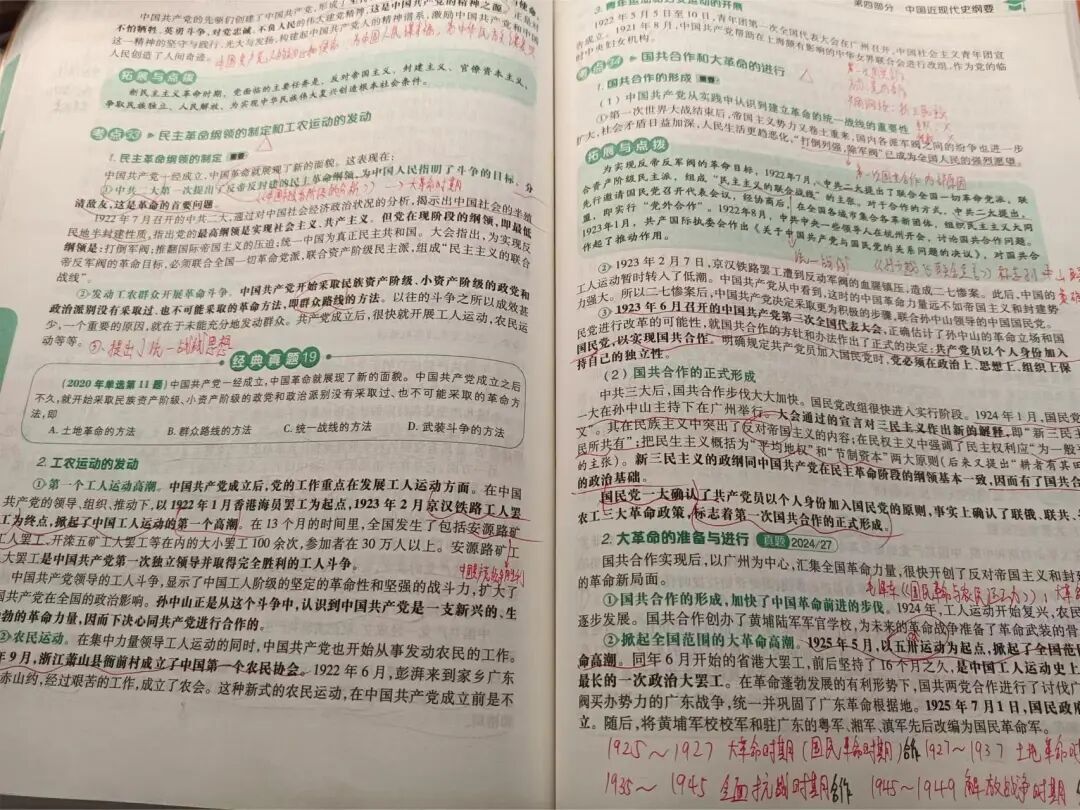 中国共产党的先驱们创建了中国共产党,形成了
不怕牺牲、英勇斗争,对党忠诚、不负人民的伟大建党精神,这是中国共产党的精神之源。
这一精神的坚守与践行、光大与发扬,构建起中国共产党人的精神谱系,激励中国共产党和中国
人民创造了人间奇迹。
拓展与点拨
新民主主义革命时期,党面临的主要任务是,反对帝国主义、封建主义、官僚资本主义,
争取民族独立、人民解放,为实现中华民族伟大复兴创造根本社会条件。
考点33 民主革命纲领的制定和工农运动的发动
1. 民主革命纲领的制定 重要
中国共产党一经成立,中国革命就展现了新的面貌。这表现在:
①中共二大第一次提出了反帝反封建的民主革命纲领,为中国人民指明了斗争的目标。分
清敌友,这是革命的首要问题。
→大革命时期
1922年7月召开的中共二大,通过对中国社会经济政治状况的分析,揭示出中国社会的半殖
民地半封建性质,指出党的最高纲领是实现社会主义、共产主义。但党在现阶段的纲领,即最低
纲领是:打倒军阀;推翻国际帝国主义的压迫;统一中国为真正民主共和国。大会指出,为实现反
帝反军阀的革命目标,必须联合全国一切革命党派,联合资产阶级民主派,组成“民主主义的联合
战线”。
②发动工农群众开展革命斗争。中国共产党开始采取民族资产阶级、小资产阶级的政党和
政治派别没有采取过、也不可能采取的革命方法,即群众路线的方法。以往的斗争之所以成效甚
少,一个重要的原因,就在于未能充分地发动群众。共产党成立后,很快就开展工人运动,农民运
动等等。 ③.提出了统一战线思想
经典真题19
(2020年单选第11题)中国共产党一经成立,中国革命就展现了新的面貌。中国共产党成立之后
不久,就开始采取民族资产阶级、小资产阶级的政党和政治派别没有采取过、也不可能采取的革命方
法,即
A. 土地革命的方法 B. 群众路线的方法 C. 统一战线的方法 D. 武装斗争的方法
2. 工农运动的发动
①第一个工人运动高潮。中国共产党成立后,党的工作重点在发展工人运动方面。在中国
共产党的领导、组织、推动下,以1922年1月香港海员罢工为起点,1923年2月京汉铁路工人罢
工为终点,掀起了中国工人运动的第一个高潮。在13个月的时间里,全国发生了包括安源路矿
工人罢工、开滦五矿工人罢工等在内的大小罢工100余次,参加者在30万人以上。安源路矿工
人大罢工是中国共产党第一次独立领导并取得完全胜利的工人斗争。
中国共产党领导的工人斗争,显示了中国工人阶级的坚定的革命性和坚强的战斗力,扩大了
中国共产党在全国的政治影响。孙中山正是从这个斗争中,认识到中国共产党是一支新兴的、生
气勃勃的革命力量,因而下决心同共产党进行合作的。
②农民运动。在集中力量领导工人运动的同时,中国共产党也开始从事发动农民的工作。
年9月,浙江萧山县衙前村成立了中国第一个农民协会。1922年6月,彭湃来到家乡广东
赤山约,经过艰苦的工作,成立了农会。这种新式的农民运动,在中国共产党成立前是不
第四部分 中国近现代史纲要
3. 青年运动和妇女运动的开展
1922年5月5日至10日,青年团第一次全国代表大会在广州召开,中国社会主义青年团宣
告成立。1922年8月,中国共产党帮助在上海颇有影响的中华女界联合会进行改组,作为党的临
时中央妇女机构。
考点34 国共合作和大革命的进行
1. 国共合作的形成 重要
(1)中国共产党从实践中认识到建立革命的统一战线的重要性
①第一次世界大战结束后,帝国主义势力又卷土重来,国内各派军阀之间的纷争也进一步
扩大,社会矛盾日益加深,人民生活更趋恶化,“打倒列强,除军阀”已成为全国人民的强烈愿望。
拓展与点拨
为实现反帝反军阀的革命目标,1922年7月,中共二大提出了联合全国一切革命党派,联
合资产阶级民主派,组成“民主主义的联合战线”的主张。对于合作的方式,中共二大提出,
先行邀请国民党召开代表会议,经协商后,在全国各城市集合各革新团体,组织民主主义大同
盟,即实行“党外合作”。1922年8月,中共中央一些领导人在杭州开会,讨论国共合作问题。
1923年1月,共产国际执委会作出《关于中国共产党与国民党的关系问题的决议》,对国共合
作起了推动作用。
统一战线
②1923年2月7日,京汉铁路罢工遭到反动军阀的血腥镇压,造成二七惨案。此后,中国的
工人运动暂时转入了低潮。中国共产党从中看到,这时的中国革命力量远不如帝国主义和封建势
力强大。所以二七惨案后,中国共产党决定采取更为积极的步骤,联合孙中山领导的中国国民党。
③1923年6月召开的中国共产党第三次全国代表大会,正确估计了孙中山的革命立场和国
民党进行改革的可能性,就国共合作的方针和办法作出了正式的决定:共产党员以个人身份加入
国民党,以实现国共合作。明确规定共产党员加入国民党时,党必须在政治上、思想上、组织上保
持自己的独立性。
(2)国共合作的正式形成
中共三大后,国共合作步伐大大加快。国民党改组很快进入实行阶段。1924年1月,国民党
一大在孙中山主持下在广州举行。大会通过的宣言对三民主义作出新的解释,即“新三民主
义”。其在民族主义中突出了反对帝国主义的内容;在民权主义中强调了民主权利应“为一般平
民所共有”;把民生主义概括为“平均地权”和“节制资本”两大原则(后来又提出“耕者有其田”
的主张)。新三民主义的政纲同中国共产党在民主革命阶段的纲领基本一致,因而有了国共合作
的政治基础。
国民党一大确认了共产党员以个人身份加入国民党的原则,事实上确认了联俄、联共、
农工三大革命政策,标志着第一次国共合作的正式形成。
2. 大革命的准备与进行 真题 2024/27
国共合作实现后,以广州为中心,汇集全国革命力量,很快开创了反对帝国主义和封建
的革命新局面。
①国共合作的形成,加快了中国革命前进的步伐。1924年,工人运动开始复兴,农民
逐步发展。国共合作创办了黄埔陆军军官学校,为未来的革命战争准备了革命武装的骨
②掀起全国范围的大革命高潮。1925年5月,以五卅运动为起点,掀起了全国范围
命高潮。同年6月开始的省港大罢工,前后坚持了16个月之久,是中国工人运动史上
最长的一次政治大罢工。在革命蓬勃发展的有利形势下,国共两党合作进行了讨伐广
阀买办势力的广东战争,统一并巩固了广东革命根据地。1925年7月1日,国民政府
立。随后,将黄埔军校校军和驻广东的粤军、湘军、滇军先后改编为国民革命军。
1925~1927 大革命时期(国民革命时期)合作 1927~1937 土地革命时
1935~1945 全面抗战时期合作 1945~1949 解放战争时期